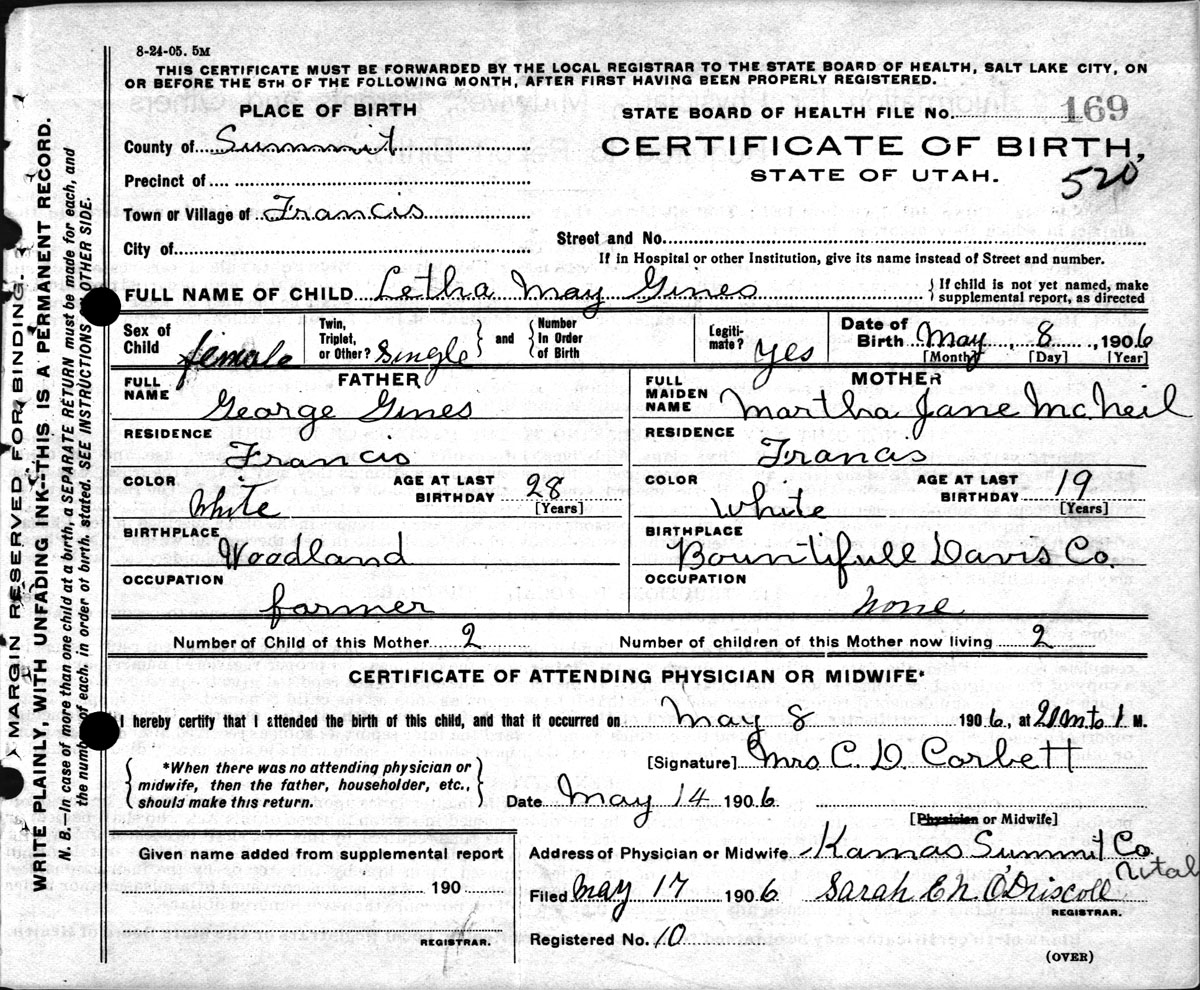 8-24-05. 5M
THIS CERTIFICATE MUST BE FORWARDED BY THE LOCAL REGISTRAR TO THE STATE BOARD OF HEALTH, SALT LAKE CITY, ON
OR BEFORE THE 5TH OF THE FOLLOWING MONTH, AFTER FIRST HAVING BEEN PROPERLY REGISTERED.
PLACE OF BIRTH
STATE BOARD OF HEALTH FILE NO. 169
County of Summit
CERTIFICATE OF BIRTH,
STATE OF UTAH.
520
Precinct of
Town or Village of Francis
City of
Street and No.
If in Hospital or other Institution, give its name instead of Street and number.
FULL NAME OF CHILD Letha May Gines
{ If child is not yet named, make
supplemental report, as directed
Sex of Child female
Twin, Triplet, or Other? Single } and { Number In Order of Birth
Legiti-mate? Yes
Date of Birth May 8, 1906
[Month] [Day] [Year]
FATHER
FULL NAME George Gines
RESIDENCE Francis
COLOR White
AGE AT LAST BIRTHDAY 28
[Years]
BIRTHPLACE Woodland
OCCUPATION farmer
MOTHER
FULL MAIDEN NAME Martha Jane McNeil
RESIDENCE Francis
COLOR White
AGE AT LAST BIRTHDAY 19
[Years]
BIRTHPLACE Bountifull Davis Co.
OCCUPATION none
Number of Child of this Mother 2
Number of children of this Mother now living 2
CERTIFICATE OF ATTENDING PHYSICIAN OR MIDWIFE*
I hereby certify that I attended the birth of this child, and that it occurred on May 8 1906, at 20 m to 1 M.
{ *When there was no attending physician or
midwife, then the father, householder, etc.,
should make this return. }
[Signature] Mrs C. D. Corbett
Date May 14 1906
[Physician or Midwife]
Given name added from supplemental report
190
REGISTRAR.
Address of Physician or Midwife Kamas Summit Co.
Utah
Filed May 17 1906 Sarah E N. O'Driscoll
REGISTRAR.
Registered No. 10
(OVER)
MARGIN RESERVED FOR BINDING.
WRITE PLAINLY, WITH UNFADING INK--THIS IS A PERMANENT RECORD.
N. B.—In case of more than one child at a birth, a SEPARATE RETURN must be made for each, and
the number of each, in order of birth, stated. SEE INSTRUCTIONS OTHER SIDE.